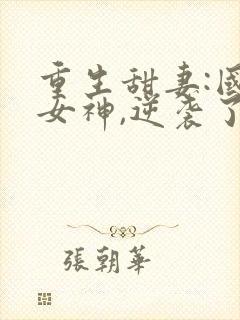 重生甜妻:國
女神,逆袭了
張朝華